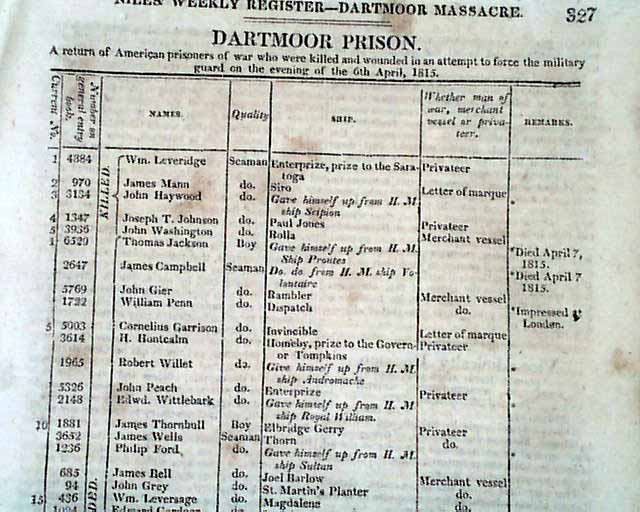 NILES' WEEKLY REGISTER—DARTMOOR MASSACRE. 327
DARTMOOR PRISON.
A return of American prisoners of war who were killed and wounded in an attempt to force the military
guard on the evening of the 6th April, 1815.
Current No. Number on general entry book. NAMES. Quality SHIP. Whether man of war, merchant vessel or privateer. REMARKS.
KILLED.
1 4884 Wm. Leveridge Seaman Enterprize, prize to the Sara- Privateer
toga
2 970 James Mann do. Siro Letter of marque
3 3134 John Haywood do. Gave himself up from H. M. *
ship Scipion
4 1347 Joseph T. Johnson do. Paul Jones Privateer
5 3936 John Washington do. Rolla Merchant vessel
1 6520 Thomas Jackson Boy Gave himself up from H. M. *Died April 7,
Ship Prontes 1815.
2647 James Campbell Seaman Do. do. from H. M. ship Vo- *Died April 7
luntaire 1815.
5769 John Gier do. Rambler Merchant vessel
1722 William Penn do. Dispatch do. *Impressed at
London.
5 5003 Cornelius Garrison do. Invincible Letter of marque
3614 H. Hontcalm do. Homeby, prize to the Govern- Privateer
or Tompkins
1965 Robert Willet do. Give himself up from H. M *
ship Andromache
5326 John Peach do. Enterprize Privateer
2148 Edwd. Wittlebark do. Gave himself up from H. M *
ship Royal William.
10 1881 James Thornbull Boy Elbridge Gerry Privateer
3652 James Wells Seaman Thorn do.
1236 Philip Ford do. Gave himself up from H. M *
ship Sultan
685 James Bell do. Joel Barlow Merchant vessel
94 John Grey do. St. Martin's Planter do.
15 436 Wm. Leversage do. Magdalene do.